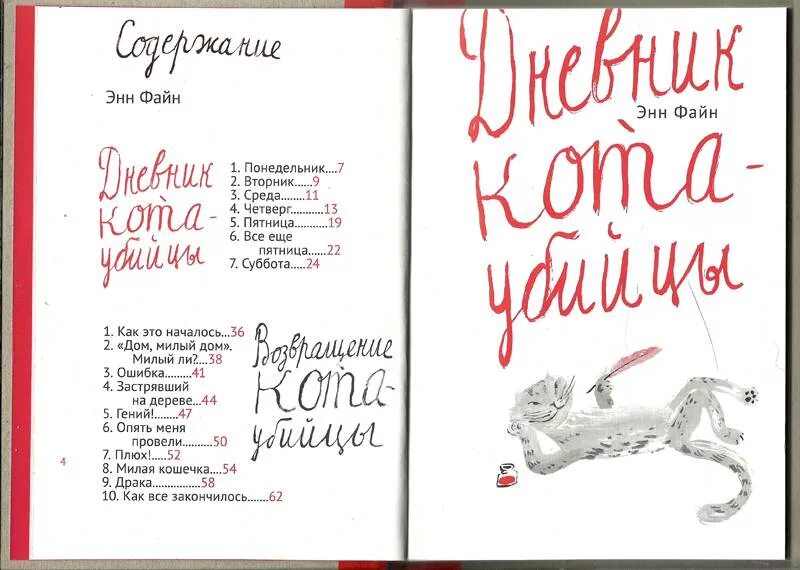 Содержание
Энн Файн
Дневник
кота-
убийцы
1. Понедельник....7
2. Вторник......9
3. Среда........11
4. Четверг..........13
5. Пятница..........19
6. Все еще
пятница......22
7. Суббота.....24
1. Как это началось...36
2. «Дом, милый дом».
Милый ли?....38
3. Ошибка.........41
4. Застрявший
на дереве...44
5. Гений!......47
6. Опять меня
провели..........50
7. Плюх!....52
8. Милая кошечка....54
9. Драка................58
10. Как все закончилось.......62
Возвращение
кота-
убийцы
4
Дневник
Энн Файн
кота-
убийцы